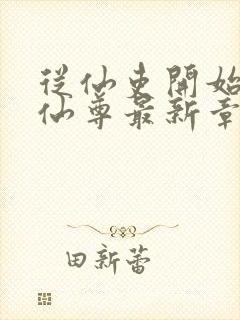 從仙吏開始
仙尊最新章
田新蕾